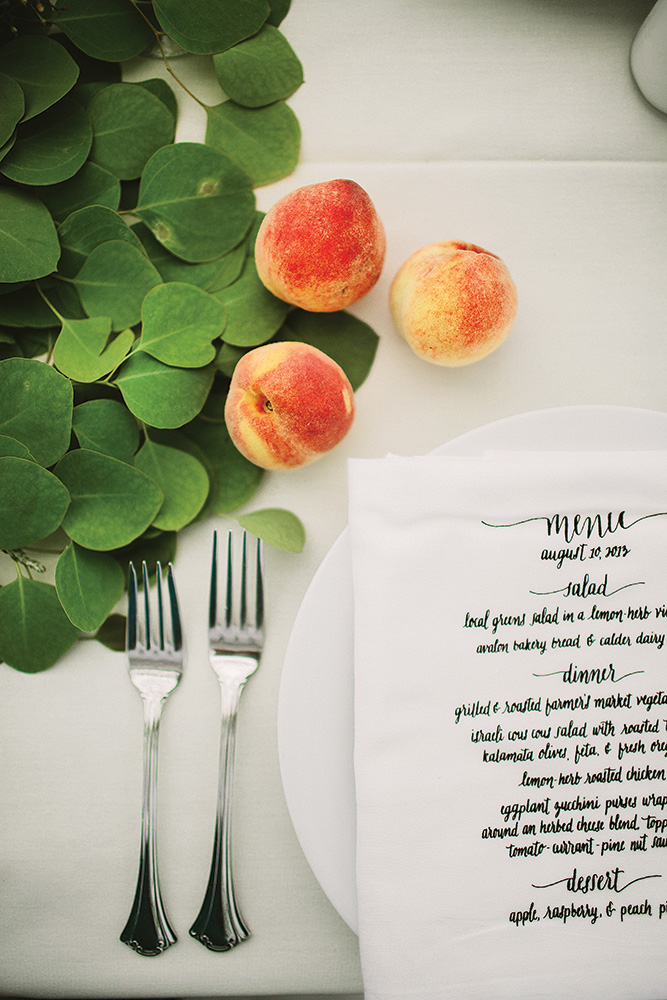 menu
august 10, 2013
salad
local greens salad in a lemon-herb
avalon bakery bread & calder dairy
dinner
grilled & roasted farmer's market
israeli cous cous salad with roasted
kalamata olives, feta, & fresh
lemon-herb roasted chicken
eggplant zucchini purses
around an herbed cheese blend,
tomato-currant-pine nut
dessert
apple, raspberry, & peach